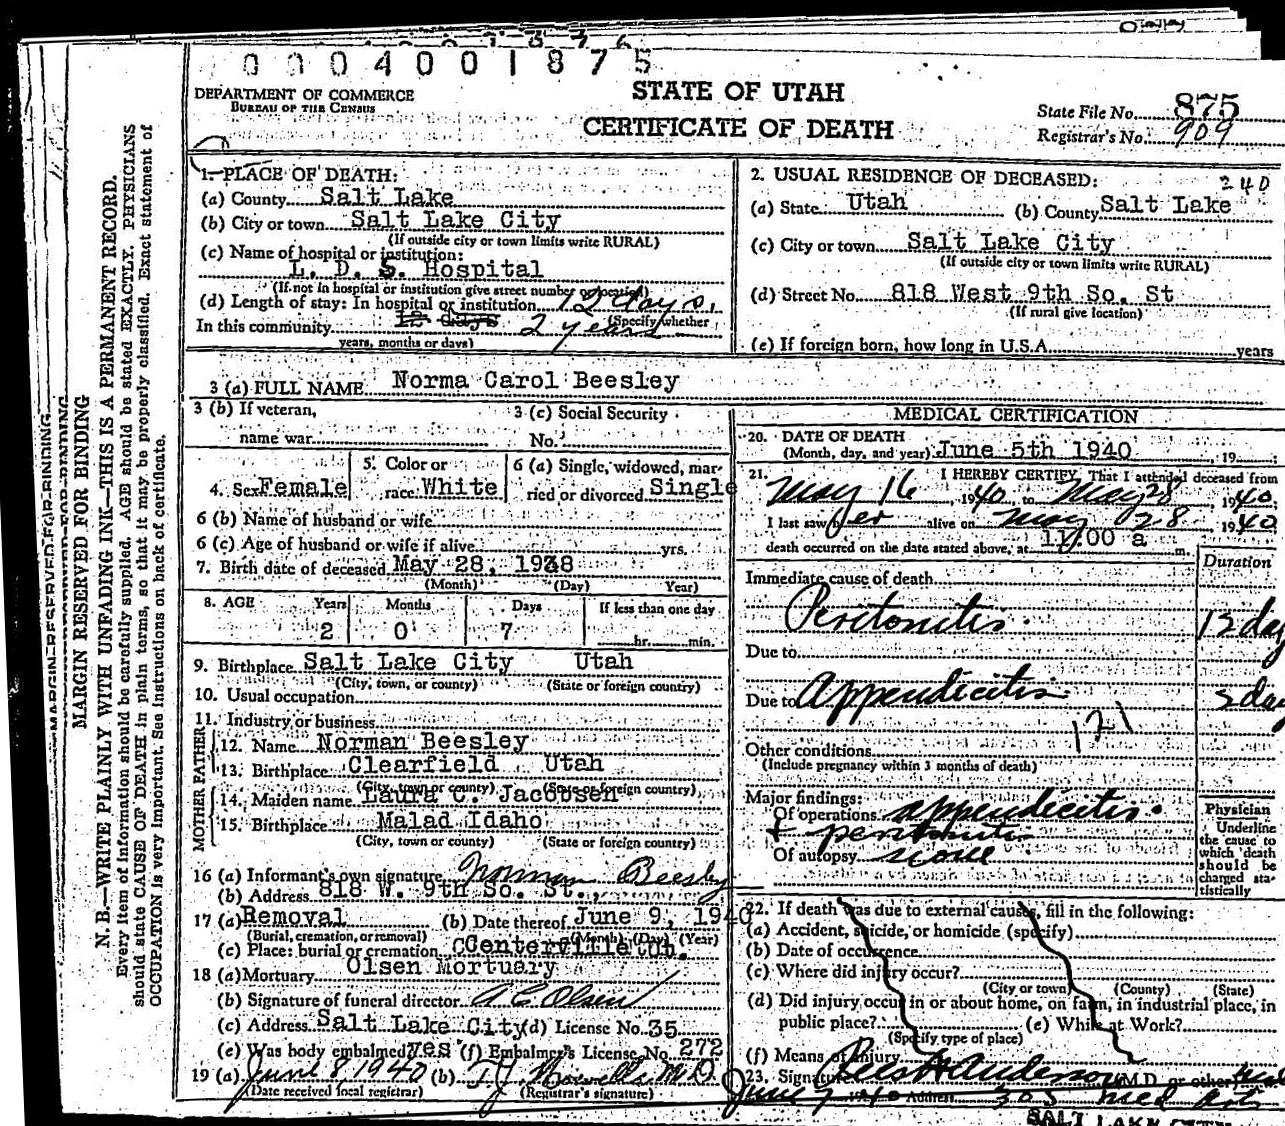 0004001875
DEPARTMENT OF COMMERCE
BUREAU OF THE CENSUS
STATE OF UTAH
CERTIFICATE OF DEATH
State File No. 875
Registrar's No. 909
MARGIN RESERVED FOR BINDING
N. B.—WRITE PLAINLY WITH UNFADING INK—THIS IS A PERMANENT RECORD.
Every item of information should be carefully supplied. AGE should be stated EXACTLY. PHYSICIANS
should state CAUSE OF DEATH in plain terms, so that it may be properly classified. Exact statement of
OCCUPATION is very important. See instructions on back of certificate.
1. PLACE OF DEATH:
(a) County Salt Lake
(b) City or town Salt Lake City
(If outside city or town limits write RURAL)
(c) Name of hospital or institution:
L. D. S. Hospital
(If not in hospital or institution give street number or location)
(d) Length of stay: In hospital or institution 12 days.
In this community 12 days 2 years (Specify whether
years, months or days)
2. USUAL RESIDENCE OF DECEASED: 240
(a) State Utah (b) County Salt Lake
(c) City or town Salt Lake City
(If outside city or town limits write RURAL)
(d) Street No. 818 West 9th So. St
(If rural give location)
(e) If foreign born, how long in U.S.A. years
3 (a) FULL NAME Norma Carol Beesley
3 (b) If veteran,
name war
3 (c) Social Security
No.
4. Sex Female
5. Color or
race White
6 (a) Single, widowed, mar-
ried or divorced Single
6 (b) Name of husband or wife
6 (c) Age of husband or wife if alive yrs.
7. Birth date of deceased May 28, 1938
(Month) (Day) Year)
8. AGE Years Months Days If less than one day
2 0 7 hr. min.
9. Birthplace Salt Lake City Utah
(City, town, or county) (State or foreign country)
10. Usual occupation
11. Industry or business
FATHER
12. Name Norman Beesley
13. Birthplace Clearfield Utah
(City, town or county) (State or foreign country)
MOTHER
14. Maiden name Laura C. Jacobsen
15. Birthplace Malad Idaho
(City, town or county) (State or foreign country)
16 (a) Informant's own signature Norman Beesley
(b) Address 818 W. 9th So. St.,
17 (a) Removal (b) Date thereof June 9, 1940
(Burial, cremation, or removal) (Month) (Day) (Year)
(c) Place: burial or cremation Centerville Ut.
18 (a) Mortuary Olsen Mortuary
(b) Signature of funeral director A. C. Olsen
(c) Address Salt Lake City (d) License No. 35
(e) Was body embalmed? yes (f) Embalmer's License No. 272
19 (a) June 8 1940 (b) M.D.
(Date received local registrar) (Registrar's signature)
MEDICAL CERTIFICATION
20. DATE OF DEATH
(Month, day, and year) June 5th 1940, 19
21. I HEREBY CERTIFY, That I attended deceased from
May 16, 1940 to May 28, 1940
I last saw her alive on May 28 1940
death occurred on the date stated above, at 11:00 a m.
Duration
Immediate cause of death
Peritonitis 13 day
Due to
Due to Appendicitis day
121
Other conditions
(Include pregnancy within 3 months of death)
Major findings:
Of operations appendicitis.
+ peritonitis
Of autopsy none
Physician
Underline
the cause to
which death
should be
charged sta-
tistically
22. If death was due to external causes, fill in the following:
(a) Accident, suicide, or homicide (specify)
(b) Date of occurrence
(c) Where did injury occur?
(City or town) (County) (State)
(d) Did injury occur in or about home, on farm, in industrial place, in
public place? (e) While at Work?
(Specify type of place)
(f) Means of injury
23. Signature Anderson (M.D. or other)
June 7 1940 Address 305 Med arts
SALT LAKE CITY